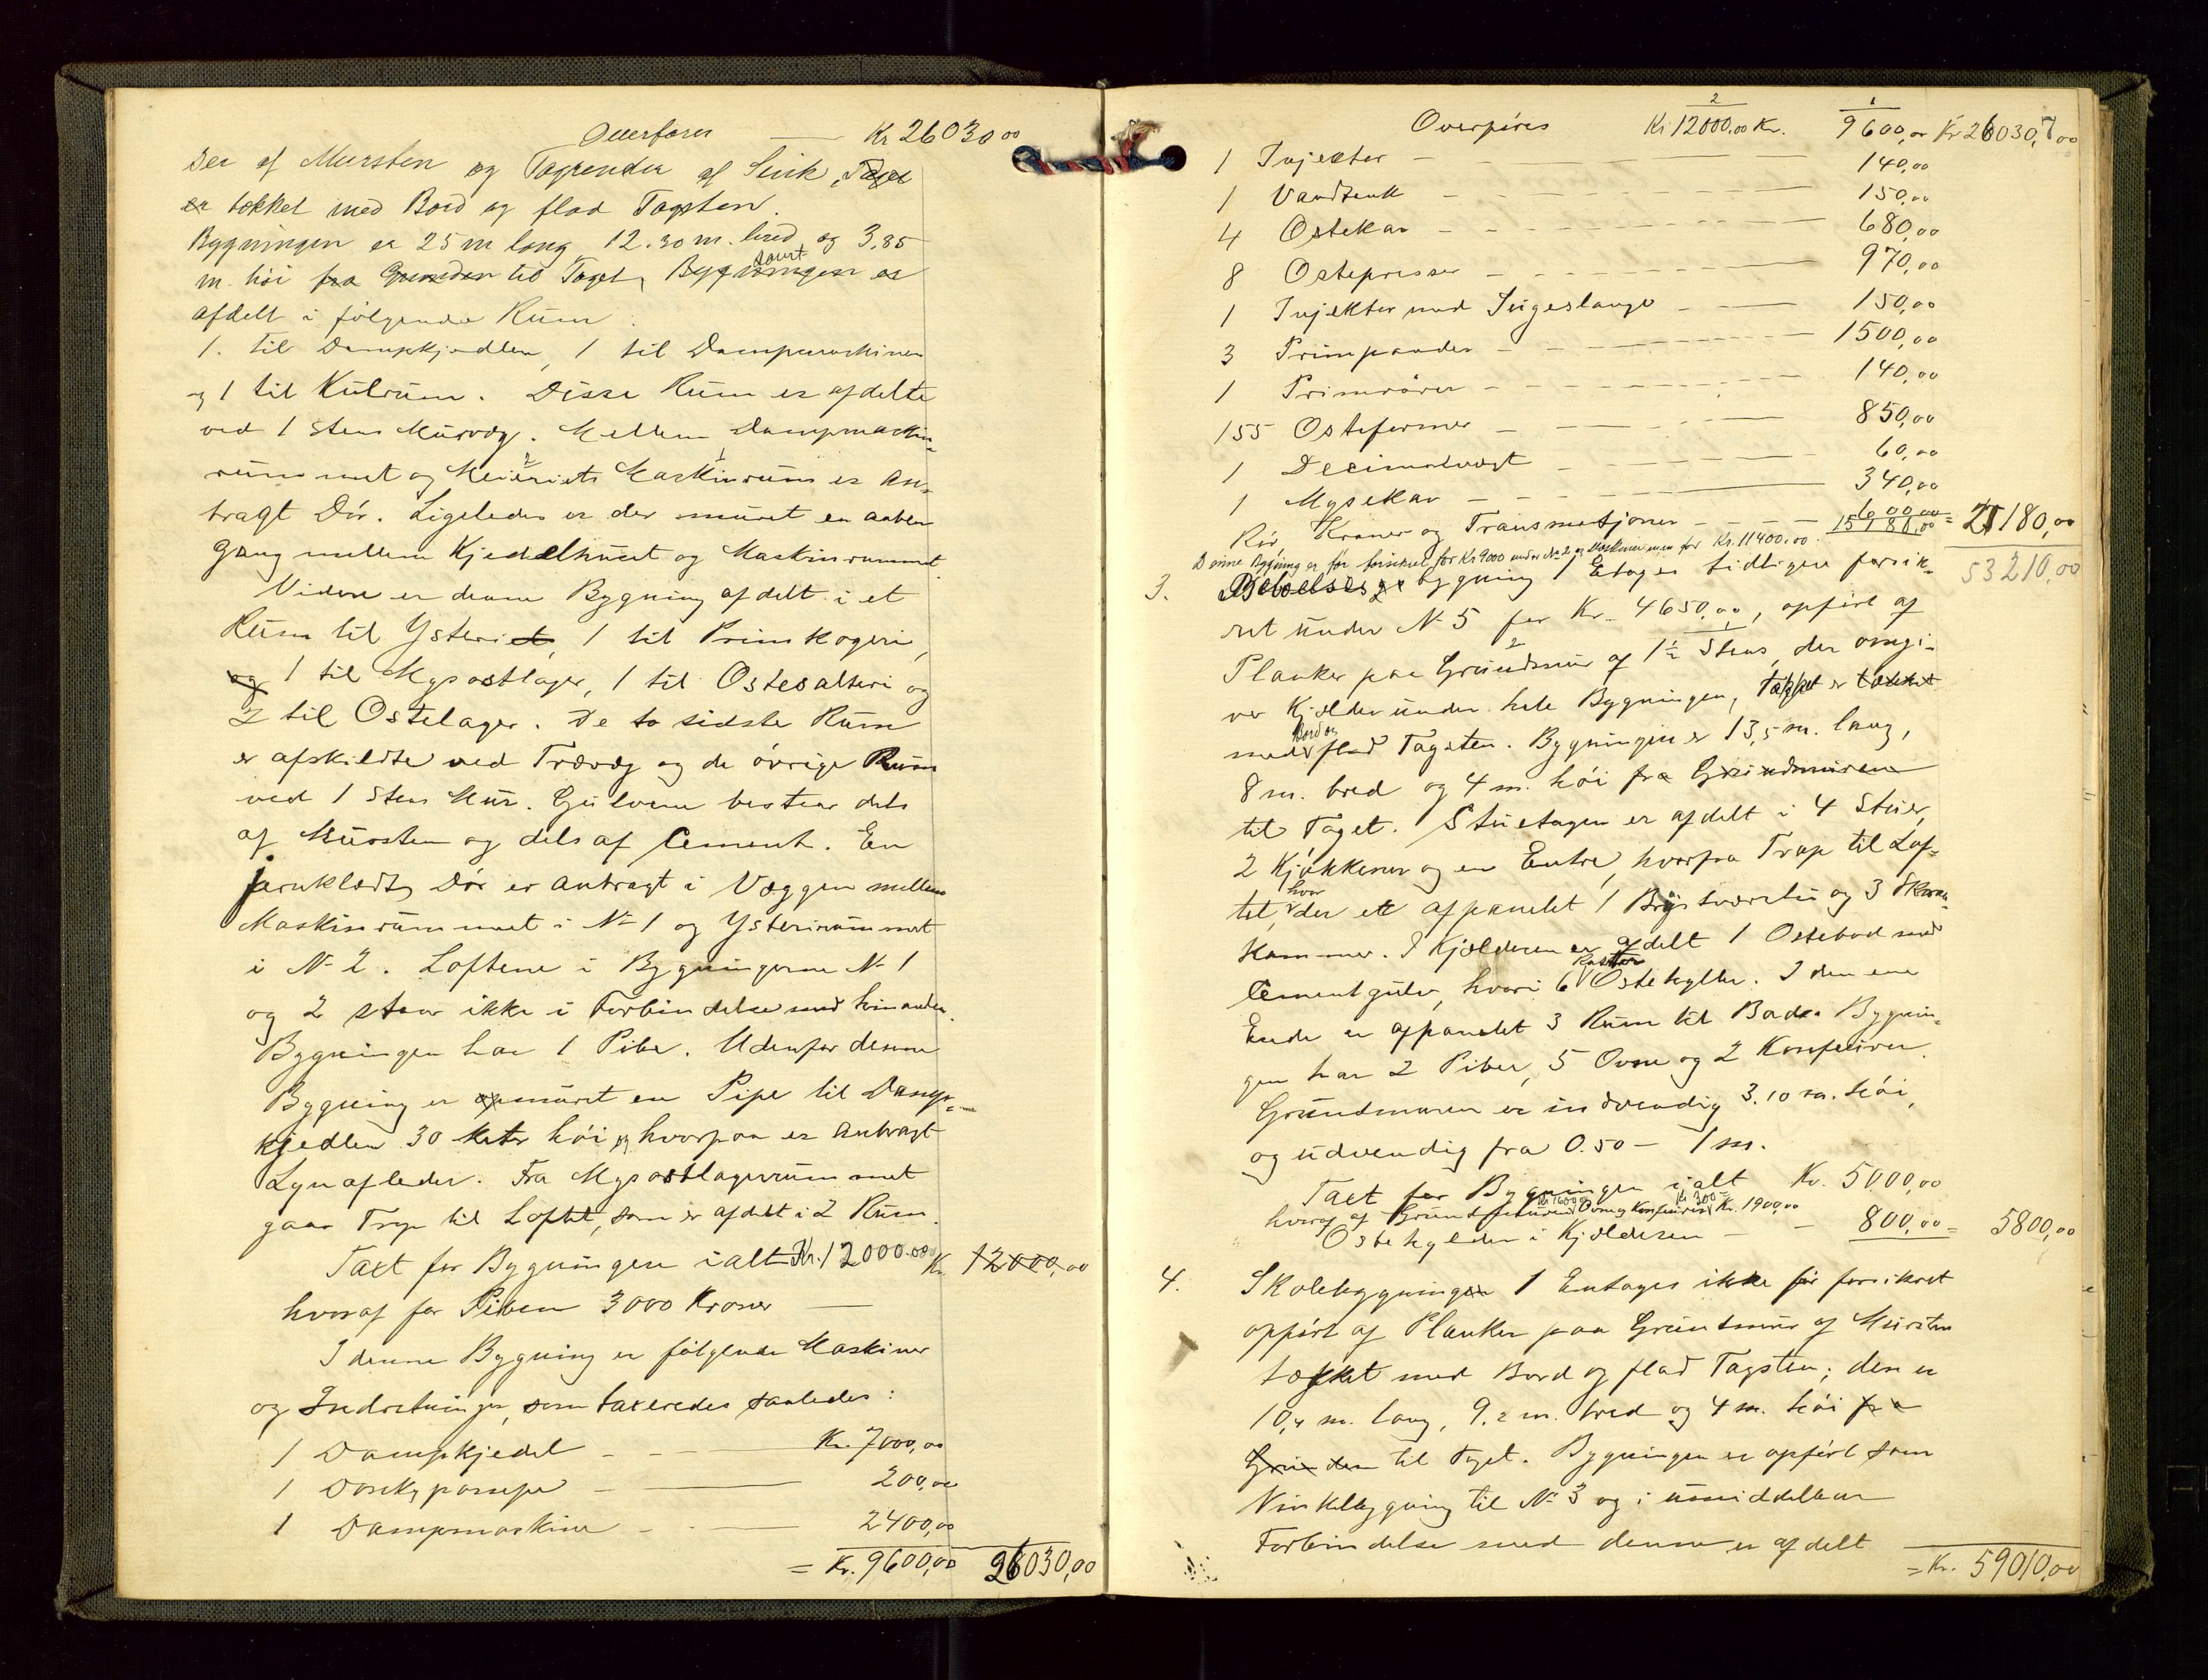 Overføres — Kr 26030 00
der af Mursten og Tagrender af Sink, Taget
er tækket med Bord og flad Tagsten.
Bygningen er 25 m lang 12.30 m. bred og 3,85
m. høi fra Grunden til Taget, Bygningen er
samt
afdelt i følgende Rum
1. til Dampkjedlen, 1 til Dampmaskinen
og 1 til Kulrum. Disse Rum er afdelte
ved 1 Stens Murvæg. Mellem Dampmaskin-
rummet og Meieriets Maskinrum er an-
bragt Dør. Ligeledes er der muret en aaben
Gang mellem Kjedelhuset og Maskinrummet.
Videre er denne Bygning afdelt i et
Rum til Ysteriet, 1 til Primkogeri,
og 1 til Mysostlager, 1 til Ostesalteri og
2 til Ostelager. De to sidste Rum
er afskildte ved Trævæg og de øvrige Rum
ved 1 Stens Mur. Gulvene bestaar dels
af Mursten og dels af Cement. En
jernklædt Dør er anbragt i Væggen mellem
Maskinrummet i No 1 og Ysterirummet
i No 2. Loftene i Bygningerne No 1
og 2 staar ikke i Forbindelse med hinanden.
Bygningen har 1 Pibe. Udenfor denne
Bygning er opmuret en Pipe til Damp-
kjedlen 30 Meter høi og hvorpaa er anbragt
Lynafleder. Fra Mysostlagerrummet
gaar Trap til Loftet, som er afdelt i 2 Rum.
Taxt for Bygningen ialt Kr. 12000.00 Kr. 12000,00
hvoraf for Piben 3000 Kroner —
I denne Bygning er følgende Maskiner
og Indretninger, som taxeredes saaledes:
1 Dampkjedel — Kr. 7000,00
1 — 200,00
1 Dampmaskine — 2400,00
= Kr. 9600,00 26030,00
2 1
Overføres Kr 12000.00 Kr. 9600,00 Kr 26030,00
1 Injektor — 140,00
1 Vandtank — 150,00
4 Ostekar — 680,00
8 Ostepresser — 970,00
1 Injektor med Sugeslange — 150,00
3 Primpander — 1500,00
1 Primrører — 140,00
155 Osteformer — 850,00
1 Decimalvægt — 60,00
1 Mysekar — 340,00
Rør, Kraner og Transmisjoner — 600,00
15180,00 = 27180,00
Denne Bygning er før forsikret for Kr 9000 under No 2 og Maskinerne for Kr. 11400.00.
53210,00
3. Beboelsesbygning 1 Etages tidligere forsik-
ret under No 5 for Kr. 4650,00, opført af
Planker paa Grundmur af 1½ Stens, der omgi-
ver Kjælder under hele Bygningen, Taget er tækket
Bord og
med flad Tagsten. Bygningen er 13,5 m. lang,
8 m. bred og 4 m. høi fra Grundmuren
til Taget. Stuetagen er afdelt i 4 Stuer,
2 Kjøkkener og en Entre, hvorfra Trap til Lof-
hvor
tet, der er afpanelet 1 Brystværstu og 3 Skraa-
kammer. I Kjælderen er afdelt 1 Ostebod med
Cementgulv, hvori 6 Ostehylder. I den ene
Ende er afpanelet 3 Rum til Bad. Bygnin-
gen har 2 Piber, 5 Ovne og 2 Komfeurer.
Grundmuren er indvendig 3.10 m. høi,
og udvendig fra 0.50 — 1 m.
Taxt for Bygningen ialt Kr. 5000,00
Kr 1600 Kr 300
hvoraf Grundmuren Ovne og Komfeurer Kr. 1900,00
Ostehylder i Kjælderen — 800,00 = 5800,00
4. Skolebygningen 1 Entages ikke før forsikret
opført af Planker paa Grundmur af Mursten
tækket med Bord og flad Tagsten; den er
10,4 m. lang, 9,2 m. bred og 4 m. høi fra
Grunden til Taget. Bygningen er opført som
Vinkelbygning til No 3 og i umiddelbar
Forbindelse med denne er afdelt
= Kr. 59010,00